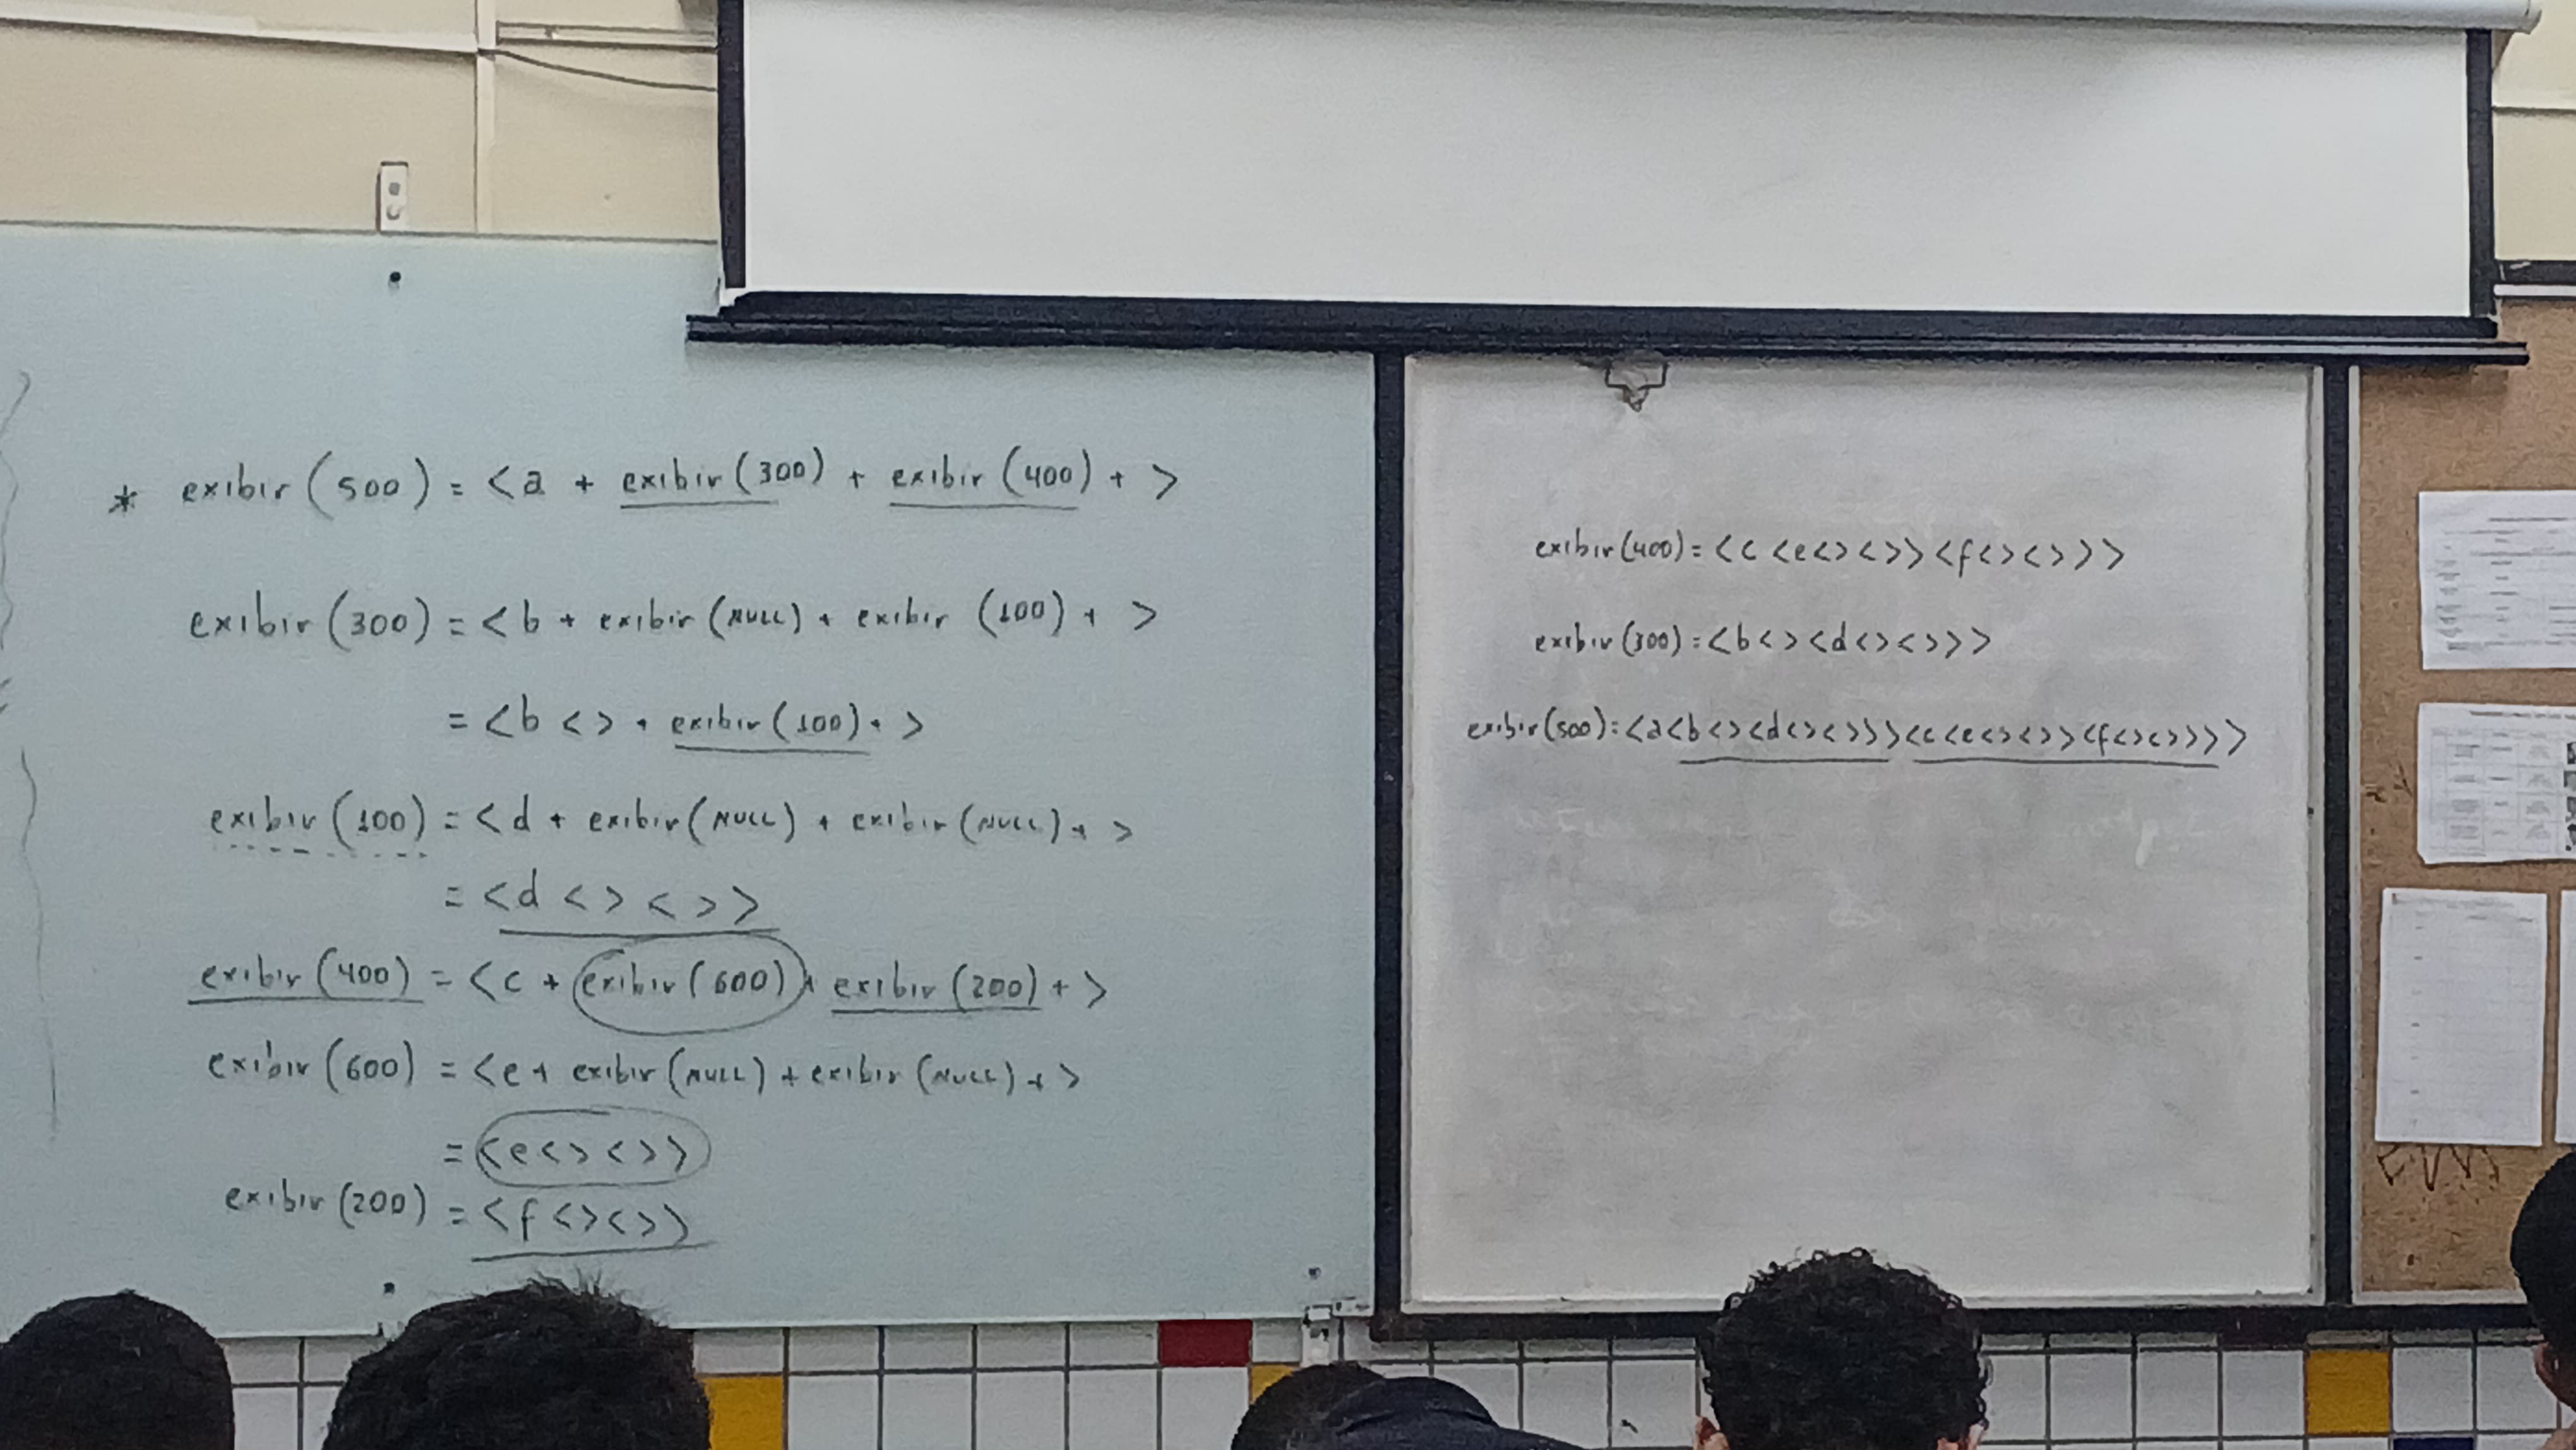 * exibir (500) = <a + exibir (300) + exibir (400) + >
exibir (300) = <b + exibir (NULL) + exibir (100) + >
= <b <> + exibir (100) + >
exibir (100) = <d + exibir (NULL) + exibir (NULL) + >
= <d <> <>>
exibir (400) = <c + exibir (600) + exibir (200) + >
exibir (600) = <e + exibir (NULL) + exibir (NULL) + >
= <e<> <>>
exibir (200) = <f <><>>
exibir (400) = <c <e<> <>> <f<><>>>
exibir (300) = <b<> <d<> <>>>
exibir (500) = <a<b<><d<><>>><c<e<><>><f<><>>>>